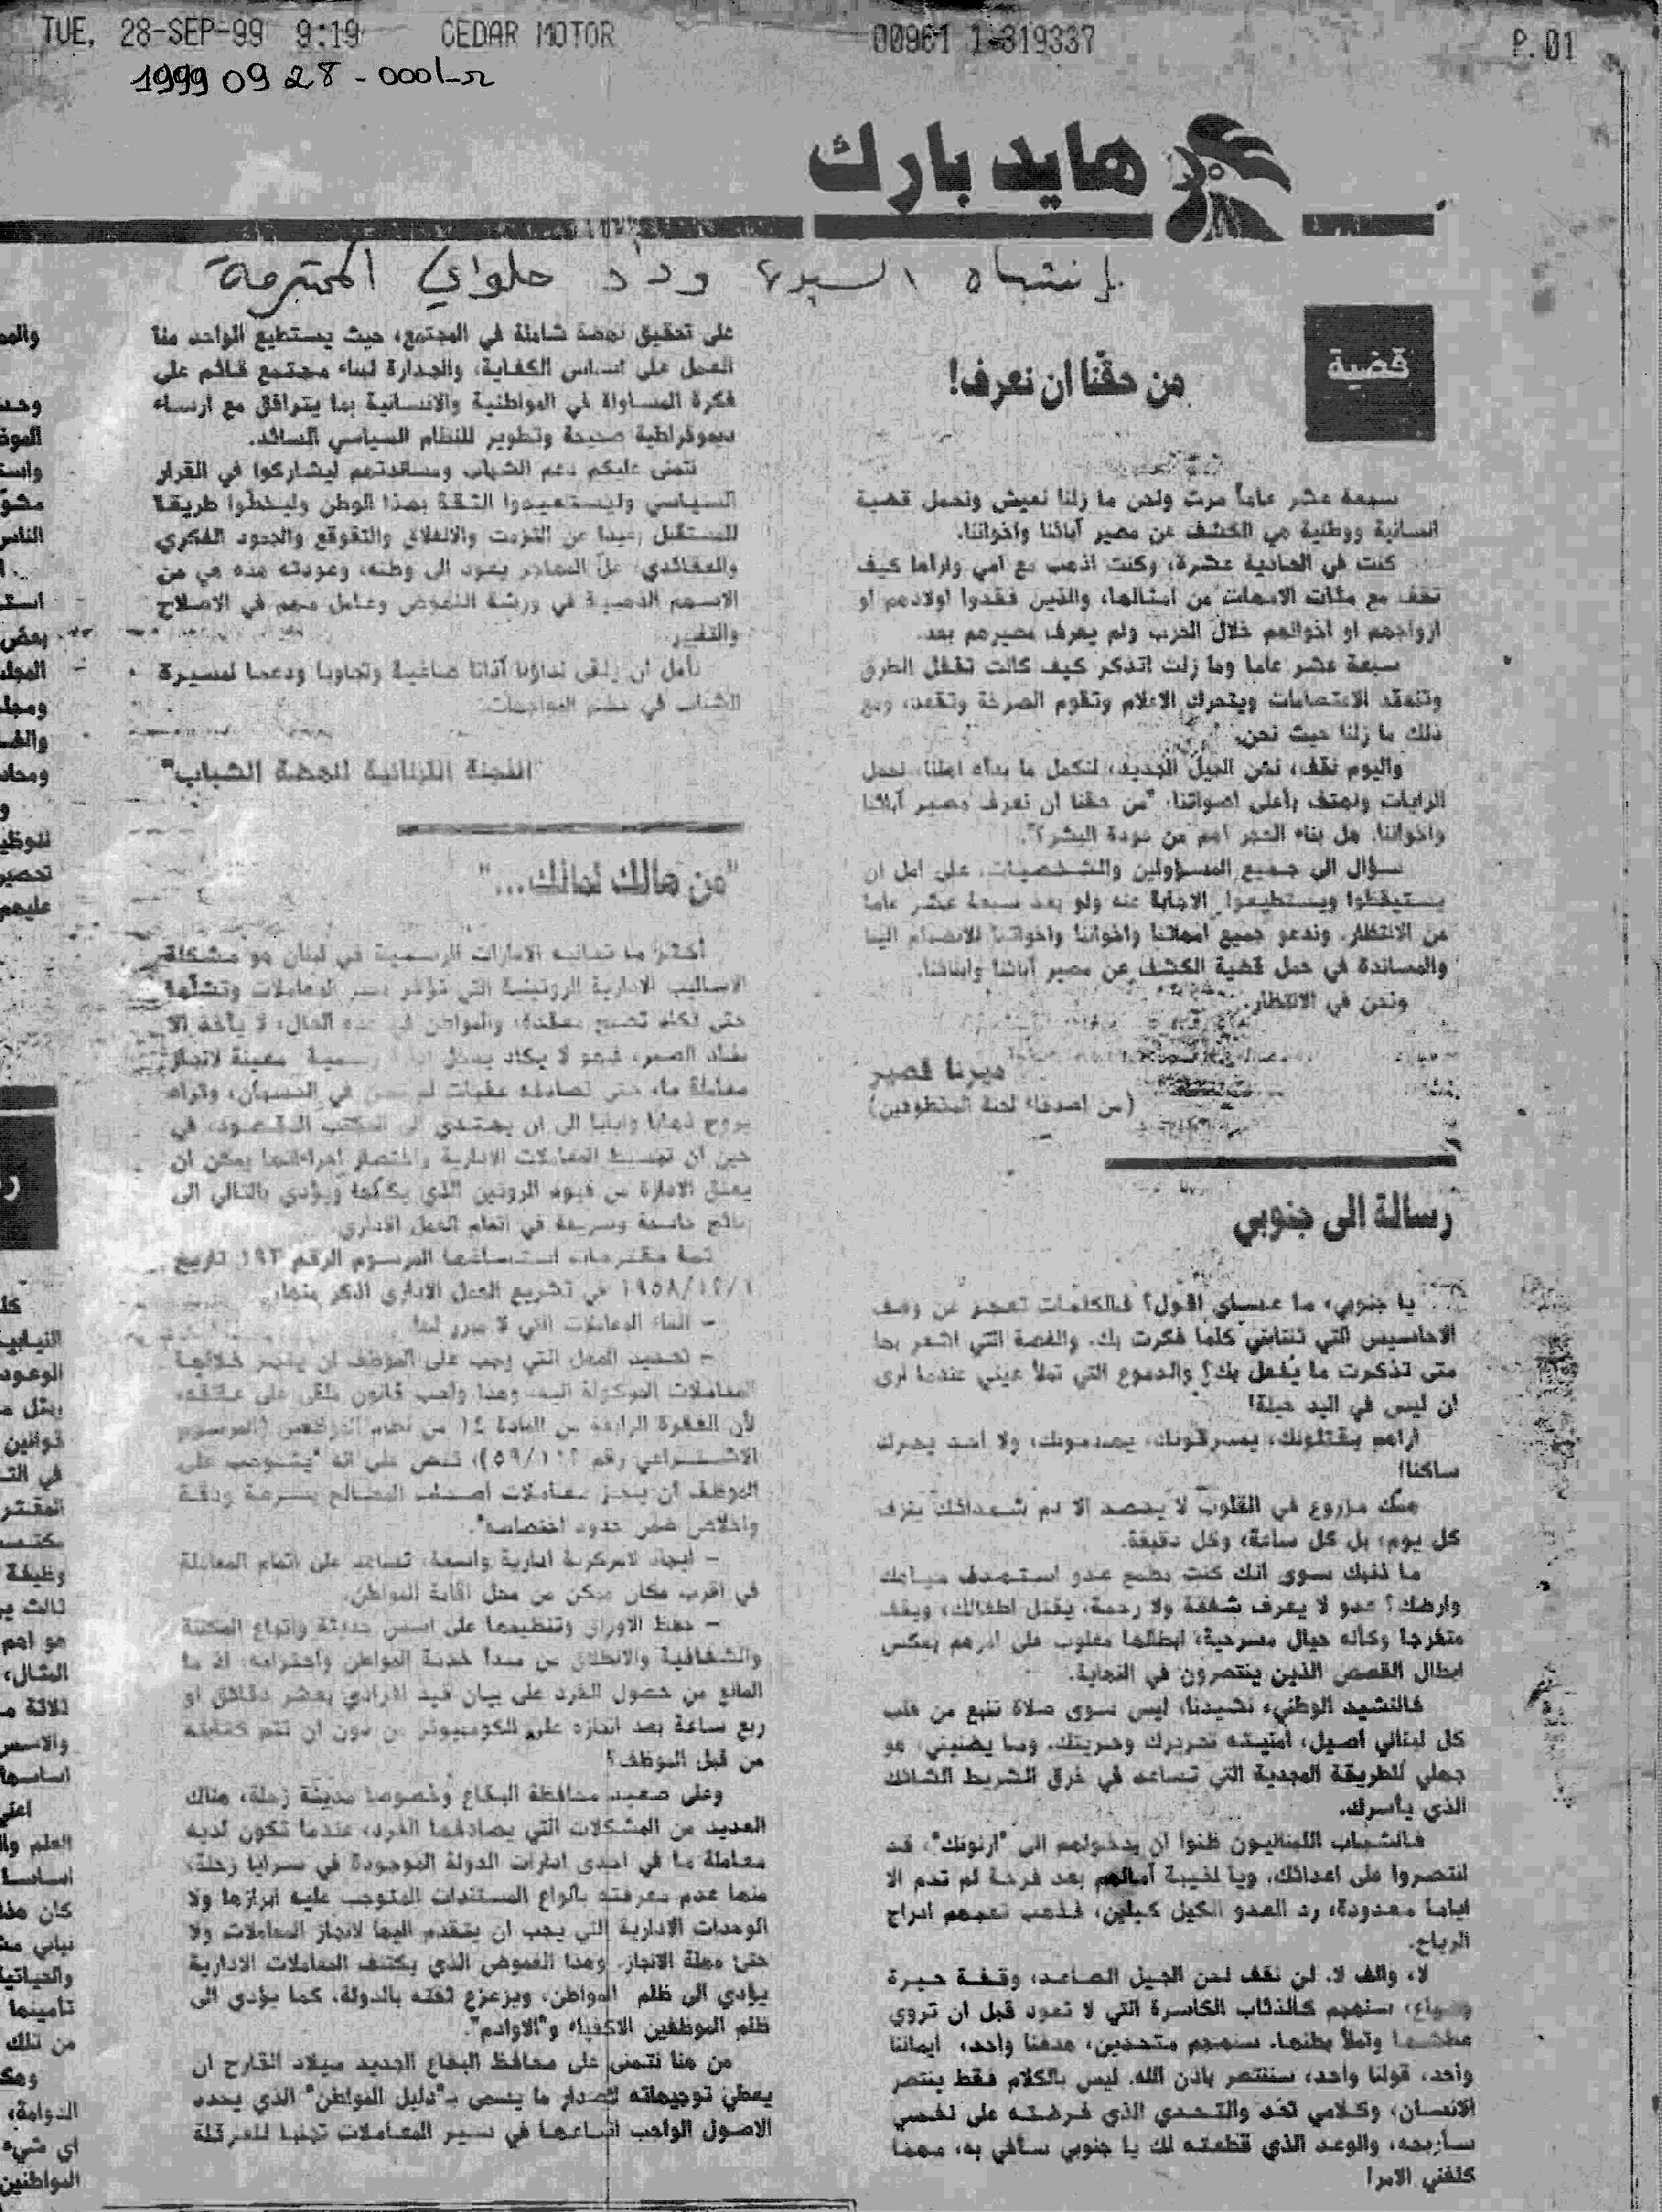 TUE, 28-SEP-99 9:19 CEDAR MOTOR 00961 1-319337 P.01
1999 09 28 - 0001-
هايد بارك
إنتباه السيدة وداد حلواني المحترمة
قضية
من حقّنا ان نعرف!
سبعة عشر عاماً مرت ونحن ما زلنا نعيش ونحمل قضية
انسانية ووطنية هي الكشف عن مصير آبائنا واخواننا.
كنت في الحادية عشرة، وكنت اذهب مع امي واراها كيف
تقف مع مئات الامهات من امثالها، والذين فقدوا اولادهم او
ازواجهم او اخوانهم خلال الحرب ولم يعرف مصيرهم بعد.
سبعة عشر عاما وما زلت اتذكر كيف كانت تقفل الطرق
وتنعقد الاعتصامات ويتحرك الاعلام وتقوم الصرخة وتقعد، ومع
ذلك ما زلنا حيث نحن.
واليوم نقف، نحن الجيل الجديد، لنكمل ما بدأه اهلنا، نحمل
الرايات ونهتف بأعلى اصواتنا: "من حقنا ان نعرف مصير آبائنا
واخواننا. هل بناء الحجر اهم من عودة البشر؟".
سؤال الى جميع المسؤولين والشخصيات، على امل ان
يستيقظوا ويستطيعوا الاجابة عنه ولو بعد سبعة عشر عاما
من الانتظار. وندعو جميع امهاتنا واخواننا واخواتنا للانضمام الينا
والمساندة في حمل قضية الكشف عن مصير آبائنا وابنائنا.
ونحن في الانتظار.
ميرنا قصير
(من اصدقاء لجنة المخطوفين)
رسالة الى جنوبي
يا جنوبي، ما عساي اقول؟ فالكلمات تعجز عن وصف
الاحاسيس التي تنتابني كلما فكرت بك. والغصة التي اشعر بها
متى تذكرت ما يُفعل بك؟ والدموع التي تملأ عيني عندما ارى
ان ليس في اليد حيلة!
اراهم يقتلونك، يسرقونك، يهدمونك، ولا أحد يحرك
ساكنا!
حبك مزروع في القلوب لا يحصد الا دم شهدائك ينزف
كل يوم، بل كل ساعة، وكل دقيقة.
ما ذنبك سوى انك كنت مطمع عدو استهدف مياهك
وارضك؟ عدو لا يعرف شفقة ولا رحمة. يقتل اطفالك، ويقف
متفرجا وكأنه حيال مسرحية، ابطالها مغلوب على امرهم بعكس
ابطال القصص الذين ينتصرون في النهاية.
فالنشيد الوطني، نشيدنا، ليس سوى صلاة تنبع من قلب
كل لبناني أصيل، أمنيته تحريرك وحريتك. وما يضنيني، هو
جهلي للطريقة المجدية التي تساعد في خرق الشريط الشائك
الذي يأسرك.
فالشباب اللبنانيون ظنوا ان بدخولهم الى "ارنونك"، قد
انتصروا على اعدائك، ويا لخيبة آمالهم بعد فرحة لم تدم الا
اياما معدودة، رد العدو الكيل كيلين، فذهب تعبهم ادراج
الرياح.
لا، والف لا. لن نقف نحن الجيل الصاعد، وقفة حيرة
وضياع، سنهجم كالذئاب الكاسرة التي لا تعود قبل ان تروي
عطشها وتملأ بطنها. سنهجم متحدين، هدفنا واحد، ايماننا
واحد، قولنا واحد، سننتصر باذن الله. ليس بالكلام فقط ينتصر
الانسان، وكلامي تعد والتحدي الذي فرضته على نفسي
سأربحه، والوعد الذي قطعته لك يا جنوبي سأفي به، مهما
كلفني الامر!
على تحقيق نهضة شاملة في المجتمع، حيث يستطيع الواحد منا
العمل على اساس الكفاية، والجدارة لبناء مجتمع قائم على
فكرة المساواة في المواطنية والانسانية بما يترافق مع ارساء
ديموقراطية صحيحة وتطوير للنظام السياسي السائد.
نتمنى عليكم دعم الشباب ومساندتهم ليشاركوا في القرار
السياسي وليستعيدوا الثقة بهذا الوطن وليخطّوا طريقا
للمستقبل بعيدا عن التزمت والانغلاق والتقوقع والجمود الفكري
والعقائدي، علّ المهاجر يعود الى وطنه، وعودته هذه هي من
الاسهم الذهبية في ورشة النهوض وعامل مهم في الاصلاح
والتغيير.
نأمل ان يلقى نداؤنا آذانا صاغية وتجاوبا ودعما لمسيرة
الشباب في خضم المواجهات.
"اللجنة اللبنانية لنهضة الشباب"
"من هالك لمالك..."
أكثر ما تعانيه الادارات الرسمية في لبنان هو مشكلة
الاساليب الادارية الروتينية التي تؤخر سير المعاملات وتشلّها
حتى تكاد تصبح معقدة، والمواطن في هذه الحال، لا يأخذ الا
نفاد الصبر، فهو لا يكاد يدخل ادارة رسمية معينة لانجاز
معاملة ما، حتى تصادفه عقبات لم تكن في الحسبان، وتراه
يروح ذهابا وايابا الى ان يهتدي الى المكتب المقصود، في
حين ان تبسيط المعاملات الادارية واختصار اجراءاتها يمكن ان
يعتق الادارة من قيود الروتين الذي يكبّلها ويؤدي بالتالي الى
نتائج حاسمة وسريعة في اتمام العمل الاداري.
ثمة مقترحات المرسوم الرقم ١٩٣ تاريخ
١٩٥٨/١٢/١ في تشريع العمل الاداري اذكر منها:
- الغاء المعاملات التي لا مبرر لها.
- تحديد المهل التي يجب على الموظف ان ينجز خلالها
المعاملات الموكولة اليه، وهذا واجب قانون ملقى على عاتقه،
لأن الفقرة الرابعة من المادة ١٤ من نظام الموظفين (المرسوم
الاشتراعي رقم ٥٩/١١٢)، تنص على انه "يتوجب على
الموظف أن ينجز معاملات اصحاب المصالح بسرعة ودقة
واخلاص ضمن حدود اختصاصه".
- ايجاد لامركزية ادارية واسعة، تساعد على اتمام المعاملة
في اقرب مكان ممكن من محل اقامة المواطن.
- حفظ الاوراق وتنظيمها على اسس حديثة واتباع المكننة
والشفافية والانطلاق من مبدأ خدمة المواطن واحترامه، اذ ما
المانع من حصول الفرد على بيان قيد افرادي بعشر دقائق او
ربع ساعة بعد انجازه على الكومبيوتر من دون ان تتم كتابته
من قبل الموظف؟
وعلى صعيد محافظة البقاع وخصوصا مدينة زحلة، هناك
العديد من المشكلات التي يصادفها الفرد، عندما تكون لديه
معاملة ما في احدى ادارات الدولة الموجودة في سرايا زحلة،
منها عدم معرفته بأنواع المستندات المتوجب عليه ابرازها ولا
الوحدات الادارية التي يجب ان يتقدم اليها لانجاز المعاملات ولا
حتى مهلة الانجاز. وهذا الغموض الذي يكتنف المعاملات الادارية
يؤدي الى ظلم المواطن، ويزعزع ثقته بالدولة، كما يؤدي الى
ظلم الموظفين الاكفياء و"الاوادم".
من هنا نتمنى على محافظ البقاع الجديد ميلاد القارح ان
يعطي توجيهاته لاصدار ما يسمى بـ"دليل المواطن" الذي يحدد
الاصول الواجب اتباعها في سير المعاملات تجنبا للعرقلة